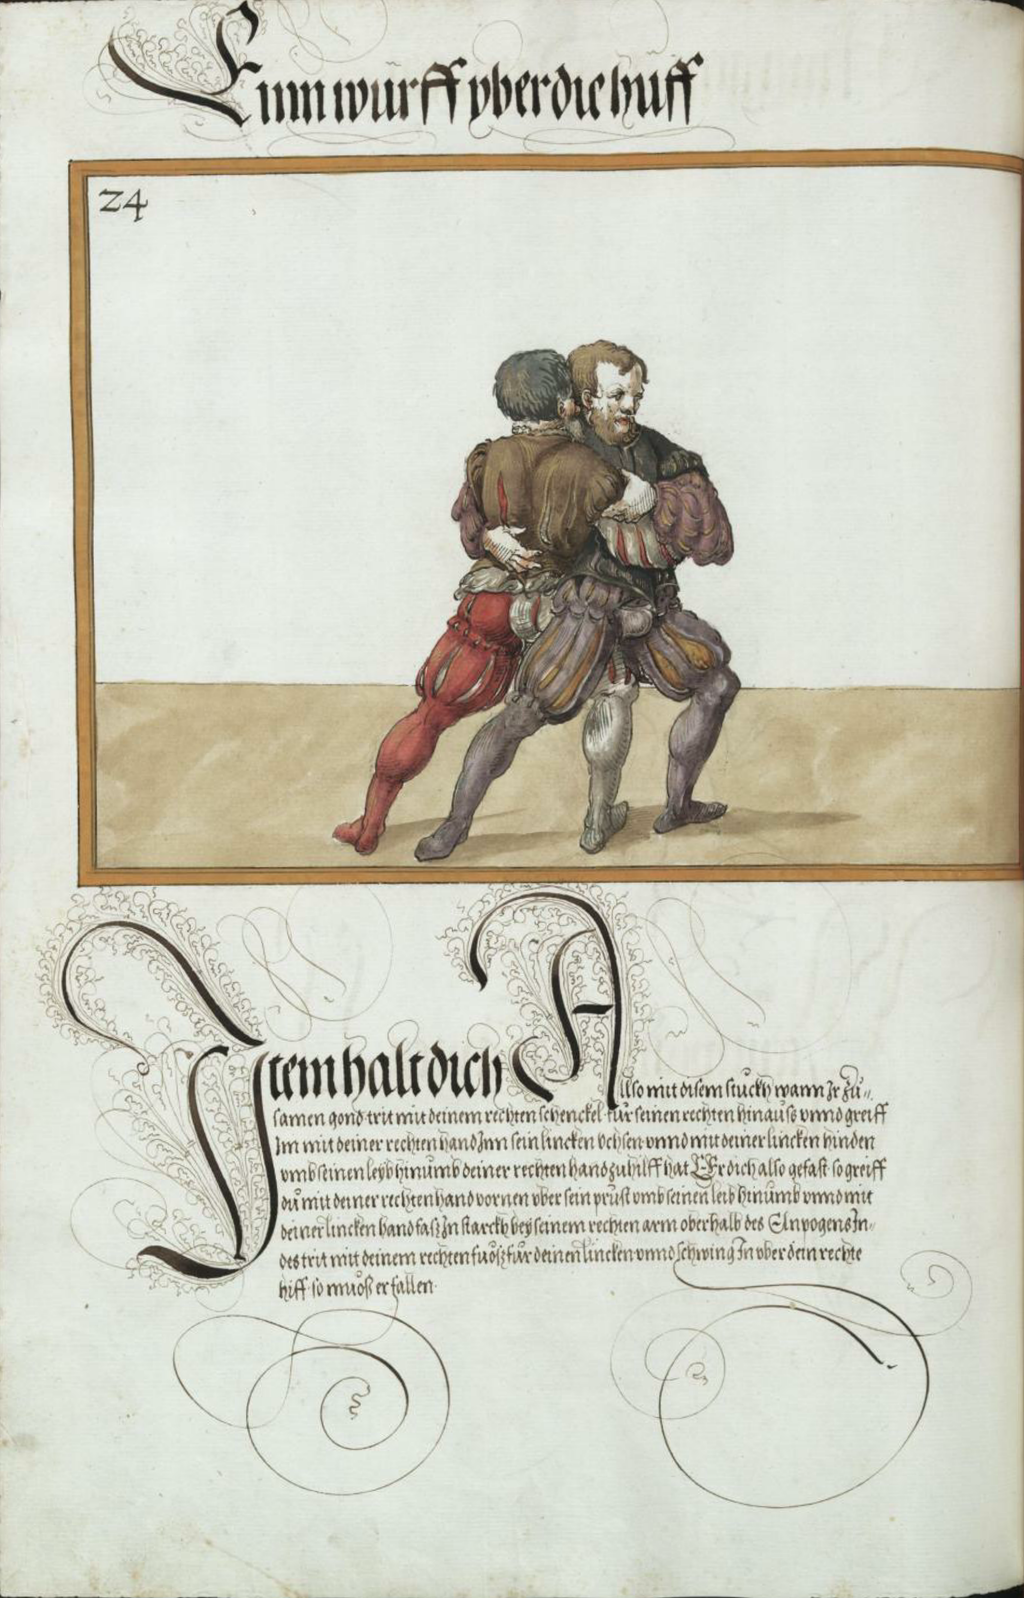 Einn würff yber die huff
24
Item halt dich Allso mit disem stuckh wann Ir zu„
samen gond trit mit deinem rechten schenckel für seinen rechten hinauss vnnd greiff
Im mit deiner rechten hand Inn sein lincken Vchsen vnnd mit deiner lincken hinden
vmb seinen leyb hinumb deiner rechten hand zu hilff hat Er dich also gefast so greiff
du mit deiner rechten hand vornen vber sein prust vmb seinen leib hinumb vnnd mit
deiner lincken hand fasz In starckh bey seinem rechten arm oberhalb des Elnpogens In„
des trit mit deinem rechten fuosz für deinen lincken vnnd schwing In vber dein rechte
hiff so muosz er fallen